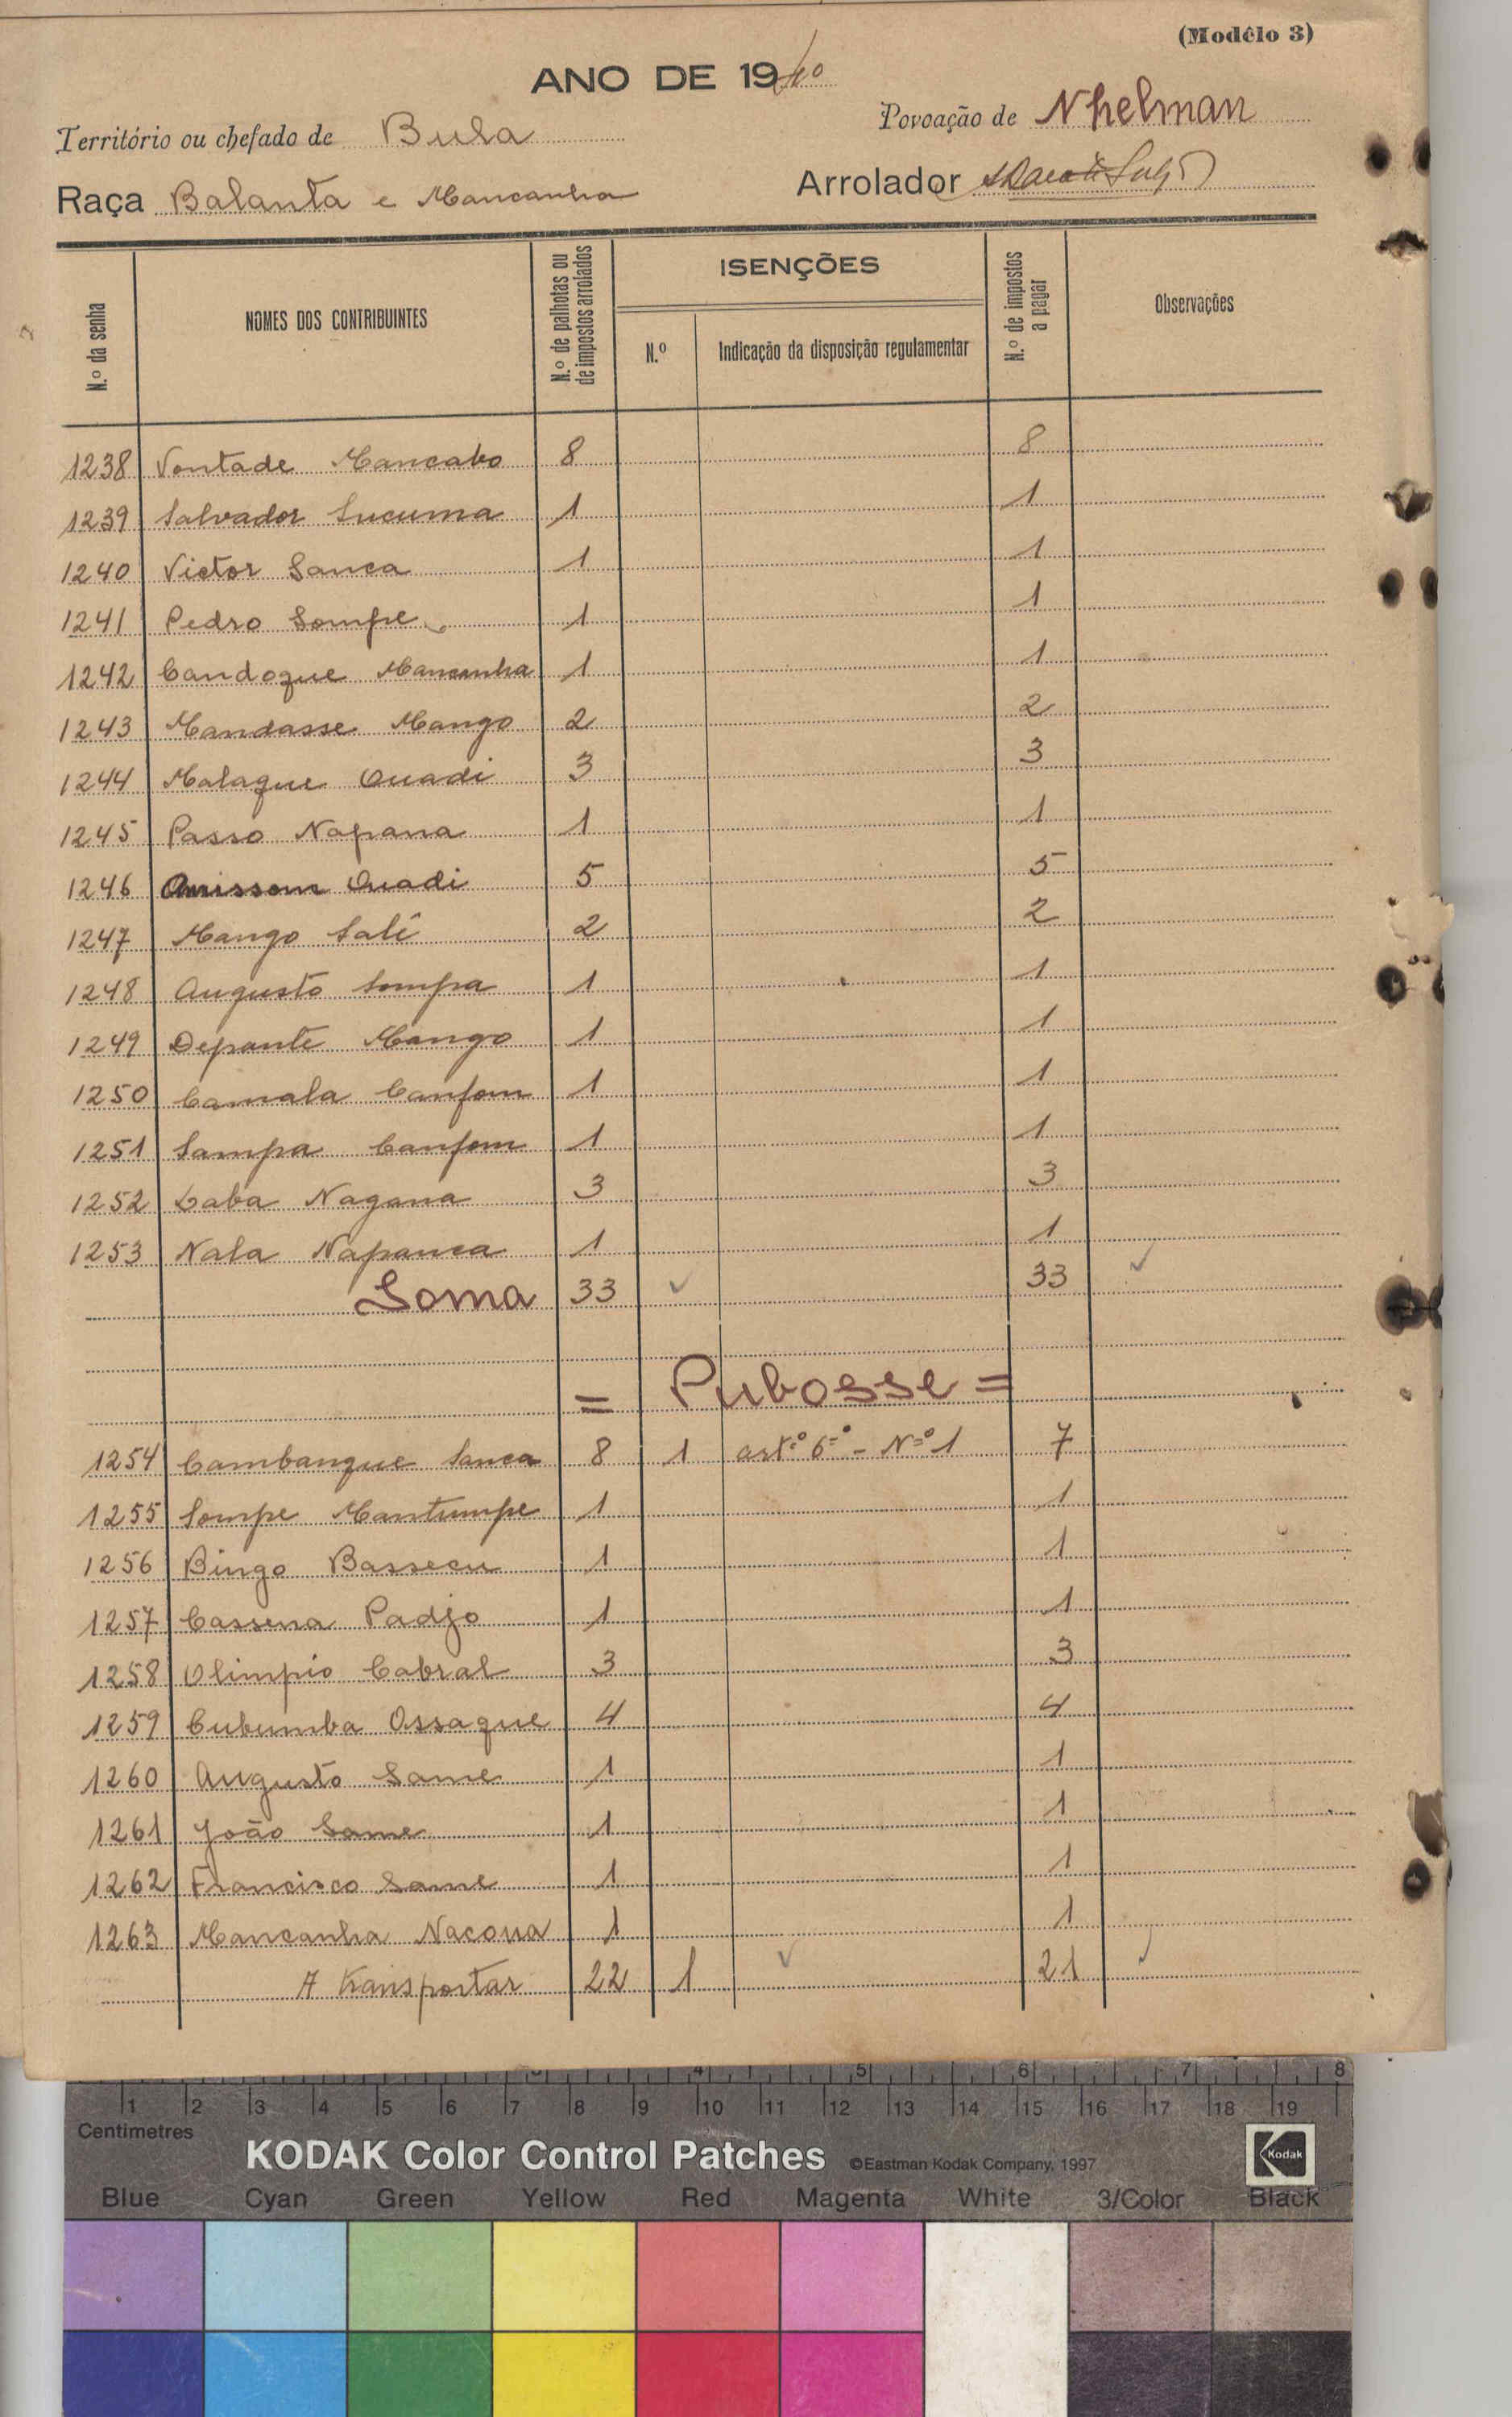 (Modêlo 3)
ANO DE 1940
Território ou chefado de Bula Povoação de Nhelman
Raça Balanta e Mancanha Arrolador
N.º da senha NOMES DOS CONTRIBUINTES N.º de palhotas ou de impostos arrolados ISENÇÕES N.º de impostos a pagar Observações
N.º Indicação da disposição regulamentar
1238 Vontade Mancabo 8 8
1239 Salvador Sucuma 1 1
1240 Victor Sanca 1 1
1241 Pedro Sompe 1 1
1242 Candoque Mancanha 1 1
1243 Mandasse Mango 2 2
1244 Malaque Quadi 3 3
1245 Passo Napana 1 1
1246 Quadi 5 5
1247 Mango Salé 2 2
1248 Augusto Sompa 1 1
1249 Depante Mango 1 1
1250 Camala Canfom 1 1
1251 Sampa Canfom 1 1
1252 Laba Nagana 3 3
1253 Nala Napanca 1 1
Soma 33 33
= Pubosse =
1254 Cambanque Sanca 8 1 artº 6º - Nº 1 7
1255 Sompe Mantumpe 1 1
1256 Bingo Bassecu 1 1
1257 Cassena Padjo 1 1
1258 Olimpio Cabral 3 3
1259 Cubumba Ossaque 4 4
1260 Augusto Same 1 1
1261 João Same 1 1
1262 Francisco Same 1 1
1263 Mancanha Nacona 1 1
A transportar 22 1 21
3 4 5 6 7 8
1 2 3 4 5 6 7 8 9 10 11 12 13 14 15 16 17 18 19
Centimetres
KODAK Color Control Patches ©Eastman Kodak Company, 1997 Kodak
Blue Cyan Green Yellow Red Magenta White 3/Color Black